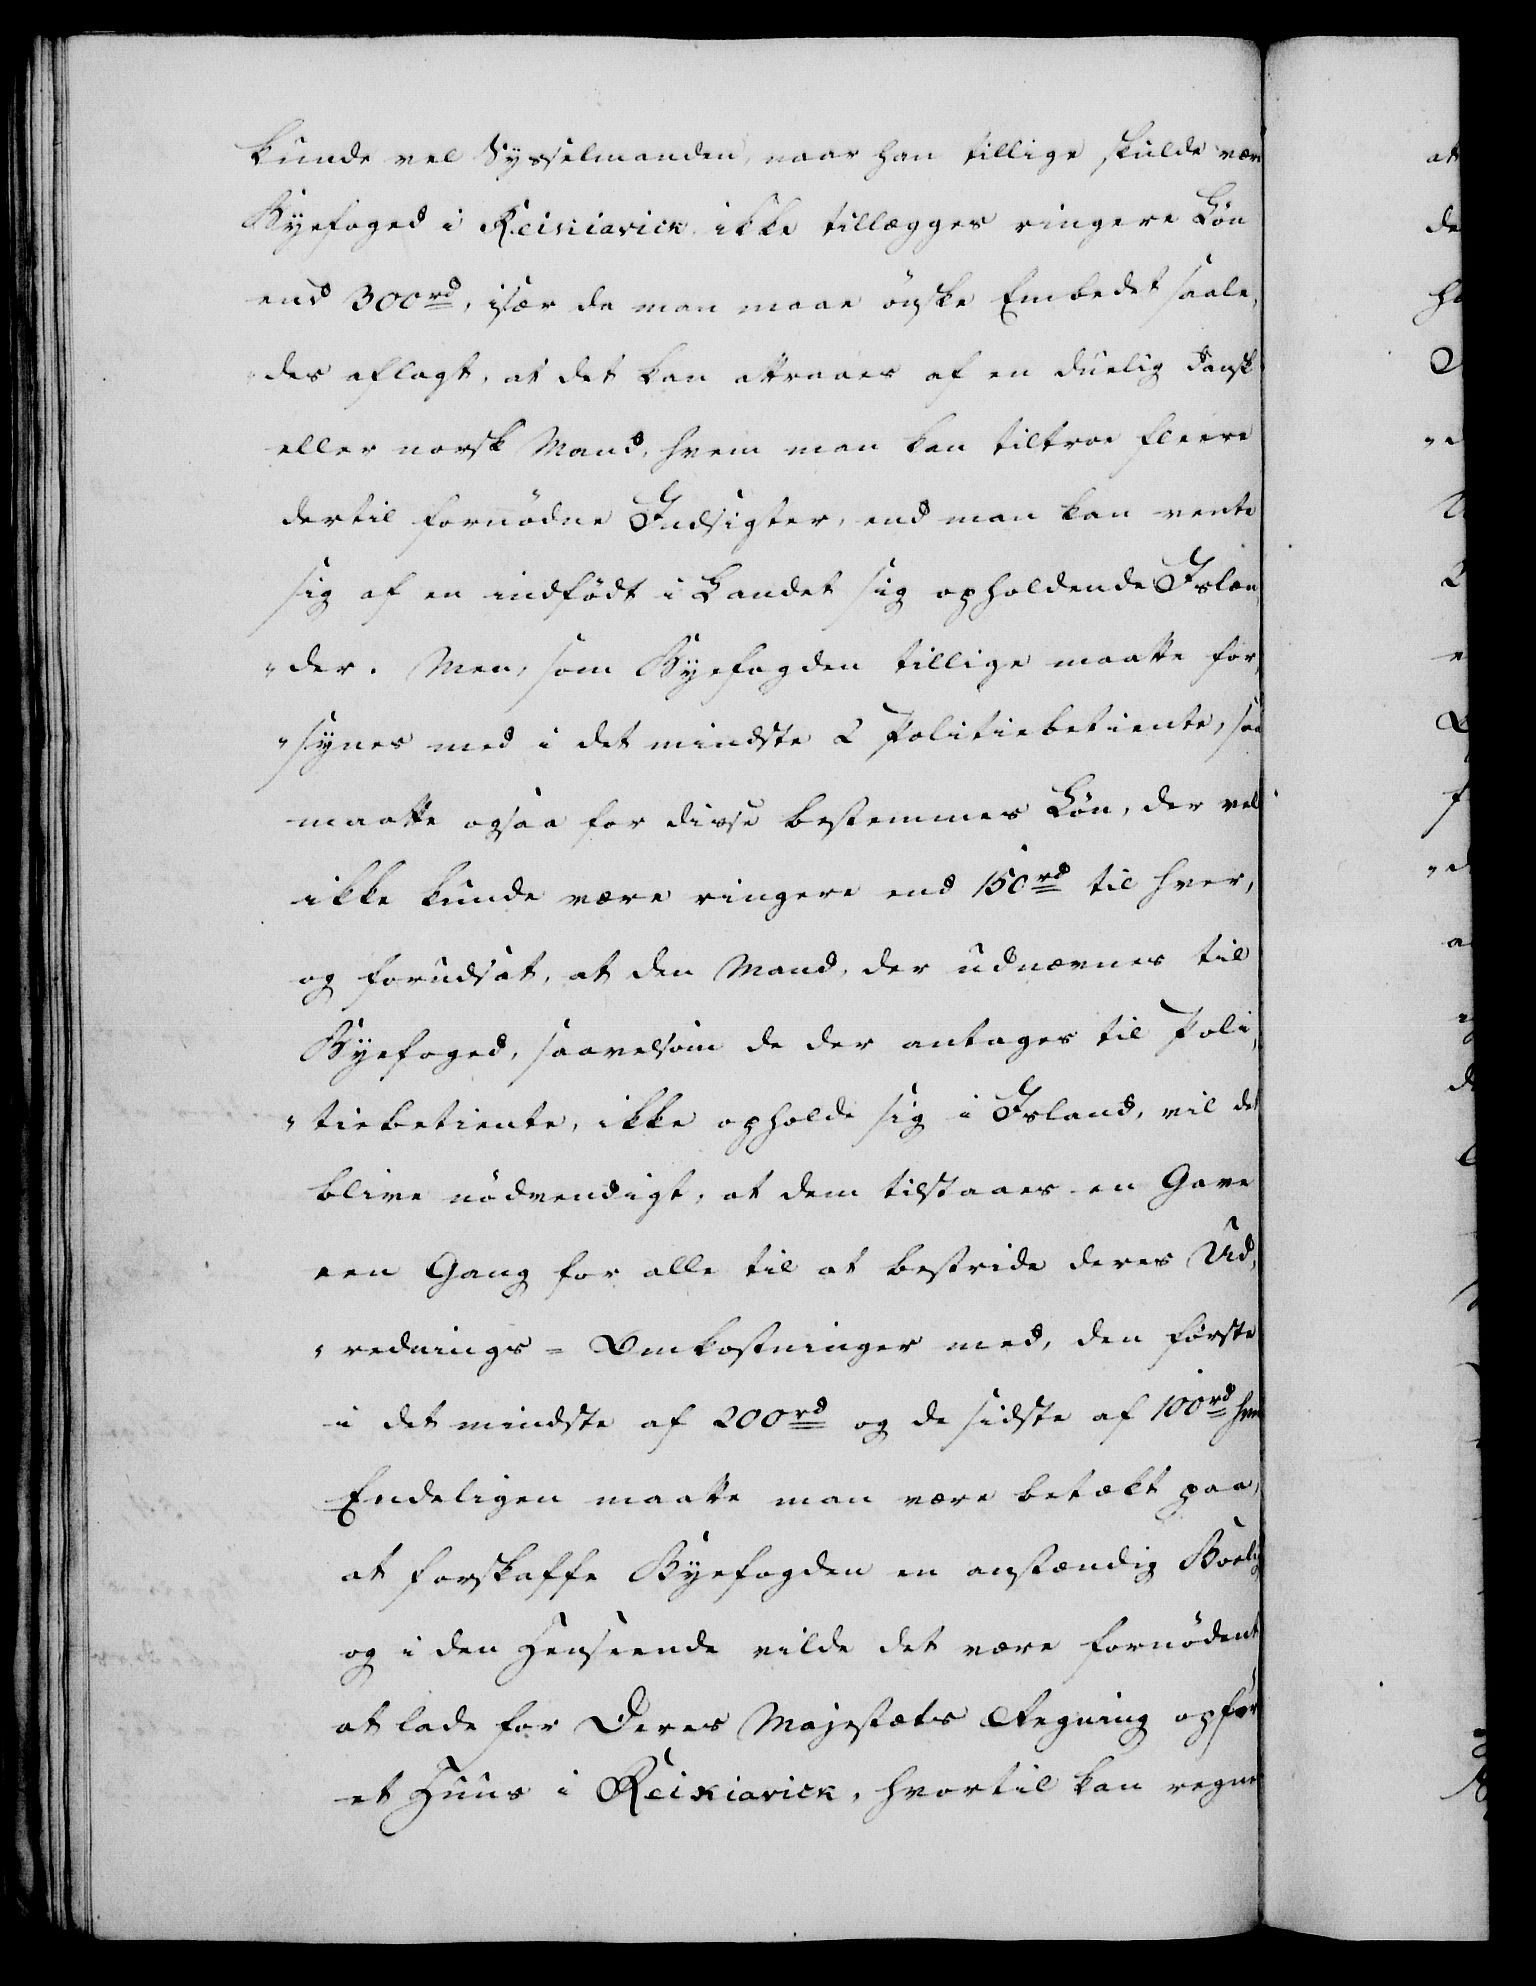 kunde vel Sysselmanden, naar han tillige skulde være
Byefoged i Reikiavick ikke tillægges ringere Løn
end 300rd, især da man maae ønske Embedet saale,
des aflagt, at det kan attraaes af en duelig dansk
eller norsk Mand, hvem man kan tiltroe fleere
dertil fornødne Indsigter, end man kan vente
sig af en indfødt i Landet sig opholdende Islæn,
"der. Men, som Byefogden tillige maatte for,
"synes med i det mindste 2 Politiebetiente, saa
maatte ogsaa for disse bestemmes Løn, der vel
ikke kunde være ringere end 150rd til hver,
og forudsat, at den Mand, der udnævnes til
Byefoged, saavelsom de der antages til Poli,
"tiebetiente, ikke opholde sig i Island, vil det
blive nødvendigt, at dem tilstaaes en Gave
een Gang for alle til at bestride deres Ud,
"rednings= Omkostninger med, den første
i det mindste af 200rd og de sidste af 100rd hver
Endeligen maatte man være betækt paa,
at forskaffe Byefogden en anstændig Boelig
og i den Henseende vilde det være fornødent
at lade for Deres Majestæts Regning opføre
et Huus i Reikiavick, hvortil kan regne